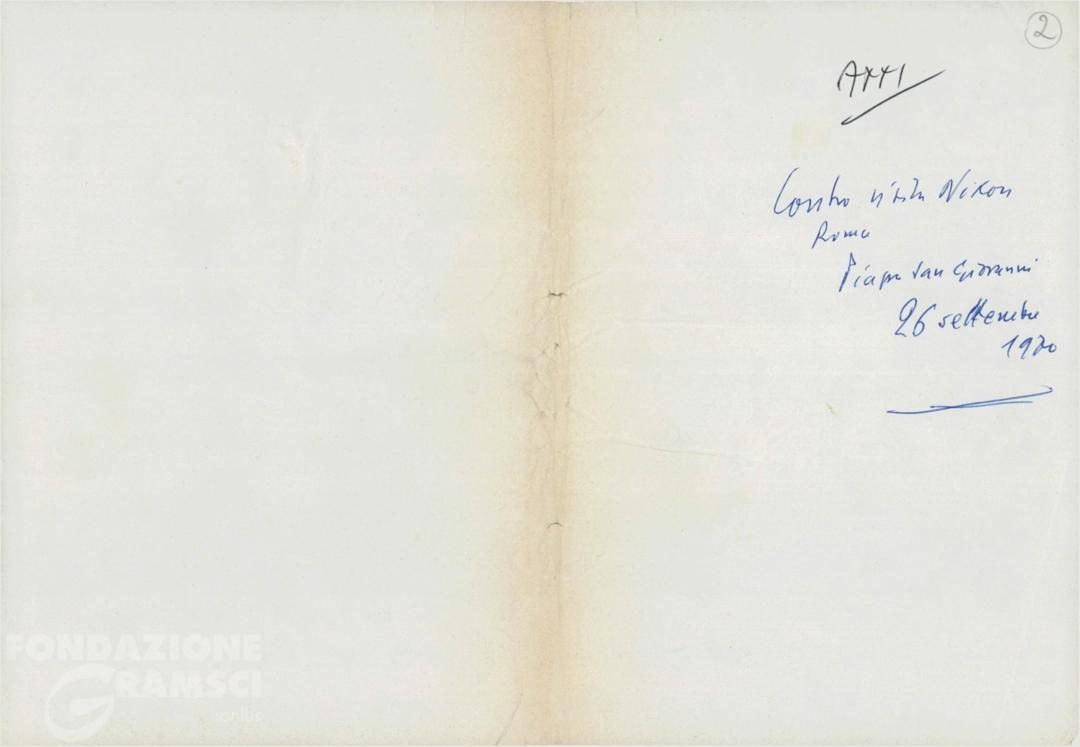 2
Contro visita Nixon
Roma
Piazza San Giovanni
26 settembre
1970
FONDAZIONE
GRAMSCI
onlus